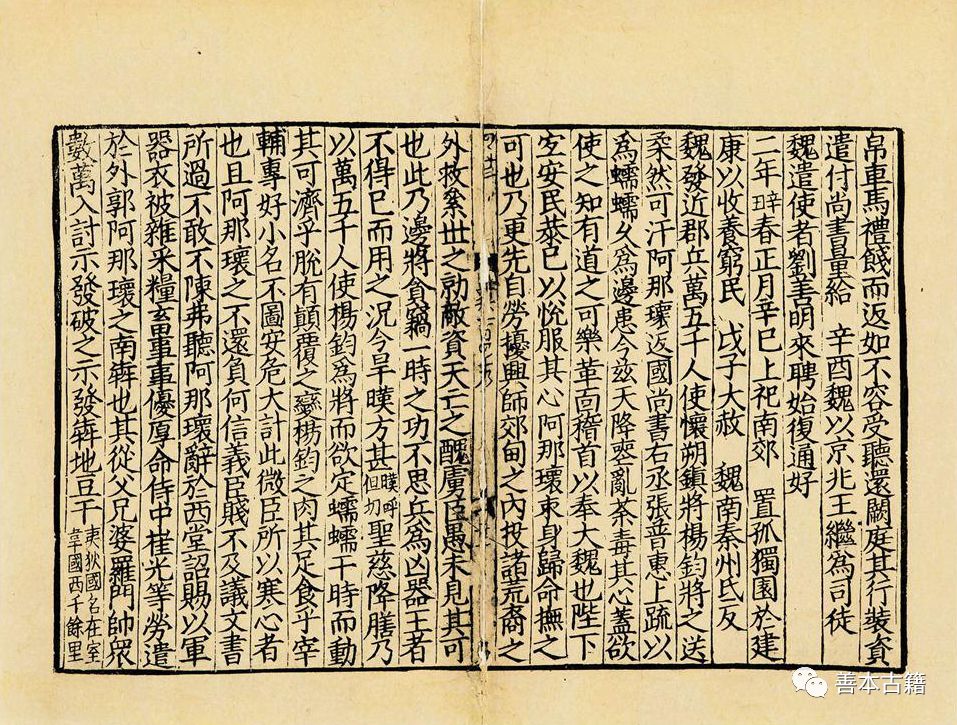 帛車馬禮餞而返如不容受聽還闕庭其行裝資
遣付尚書量給　辛酉魏以京兆王繼爲司徒
魏遣使者劉善明來聘始復通好
二年辛丑春正月辛巳上祀南郊　置孤獨園於建
康以收養窮民　戊子大赦　魏南秦州氐反
魏發近郡兵萬五千人使懷朔鎮將楊鈞將之送
柔然可汗阿那瓌返國尚書右丞張普惠上疏以
爲蠕蠕久爲邊患今茲天降喪亂荼毒其心蓋欲
使之知有道之可樂革面稽首以奉大魏也陛下
宜安民恭己以悅服其心阿那瓌束身歸命撫之
可也乃更先自勞擾興師郊甸之內投諸荒裔之
外救絫世之勍敵資天亡之醜虜臣愚未見其可
也此乃邊將貪竊一時之功不思兵爲凶器王者
不得已而用之況今旱暵方甚暵呼但切聖慈降膳乃
以萬五千人使楊鈞爲將而欲定蠕蠕干時而動
其可濟乎脫有顛覆之變楊鈞之肉其足食乎宰
輔專好小名不圖安危大計此微臣所以寒心者
也且阿那瓌之不還負何信義臣賤不及議文書
所過不敢不陳弗聽阿那瓌辭於西堂詔賜以軍
器衣被雜采糧畜事事優厚命侍中崔光等勞遣
於外郭阿那瓌之南犇也其從父兄婆羅門帥眾
數萬入討示發破之示發犇地豆干夷狄國名在室韋國西千餘里
善本古籍